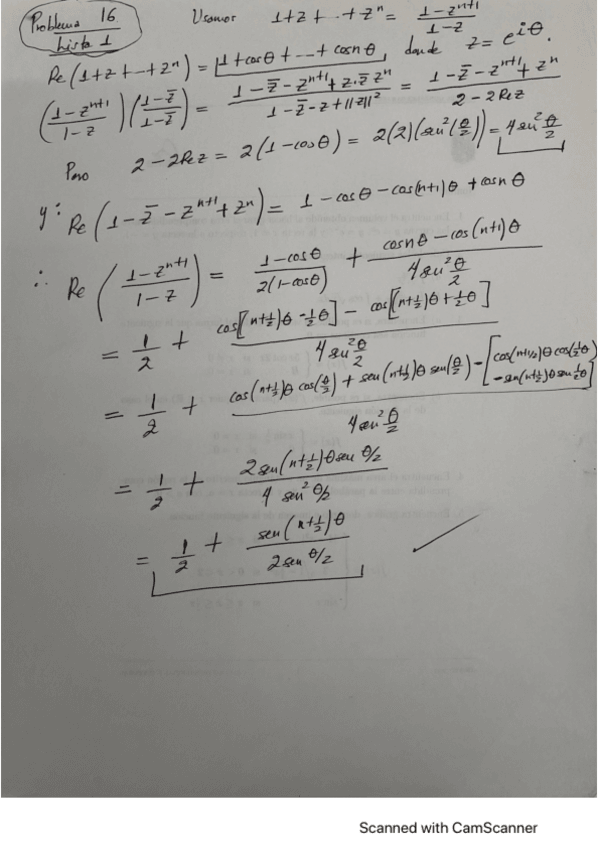 Problema 16
Lista 1
Usamos 1+z+..+zⁿ = (1-zⁿ⁺¹)/(1-z)
Re(1+z+..+zⁿ) = 1+cosθ+...+cosnθ, donde z=e^{iθ}.
((1-zⁿ⁺¹)/(1-z))((1-z̄)/(1-z̄)) = (1-z̄-zⁿ⁺¹+z·z̄ zⁿ)/(1-z̄-z+||z||²) = (1-z̄-zⁿ⁺¹+zⁿ)/(2-2Re z)
Pero 2-2Re z = 2(1-cosθ) = 2(2)(sen²(θ/2)) = 4sen² θ/2
y: Re(1-z̄-zⁿ⁺¹+zⁿ) = 1-cosθ-cos(n+1)θ+cosnθ
∴ Re((1-zⁿ⁺¹)/(1-z)) = (1-cosθ)/(2(1-cosθ)) + (cosnθ-cos(n+1)θ)/(4sen² θ/2)
= 1/2 + (cos[(n+1/2)θ-1/2θ] - cos[(n+1/2)θ+1/2θ])/(4sen² θ/2)
= 1/2 + (cos(n+1/2)θ cos(θ/2) + sen(n+1/2)θ sen(θ/2) - [cos(n+1/2)θ cos(1/2θ) - sen(n+1/2)θ sen 1/2θ])/(4sen² θ/2)
= 1/2 + (2sen(n+1/2)θ sen θ/2)/(4 sen² θ/2)
= 1/2 + (sen(n+1/2)θ)/(2sen θ/2) ✓
Scanned with CamScanner